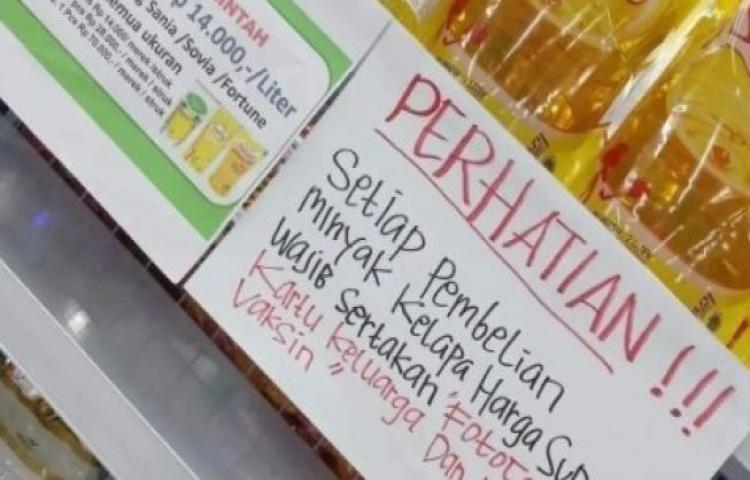 14.000,-/Liter
Sania /Sovia /Fortune
semua ukuran
1 Pcs Rp 70.000,- / merek / struk
PERHATIAN !!!
Setiap Pembelian
Minyak Kelapa Harga
Wajib Sertakan "
Kartu Keluarga Dan
Vaksin "